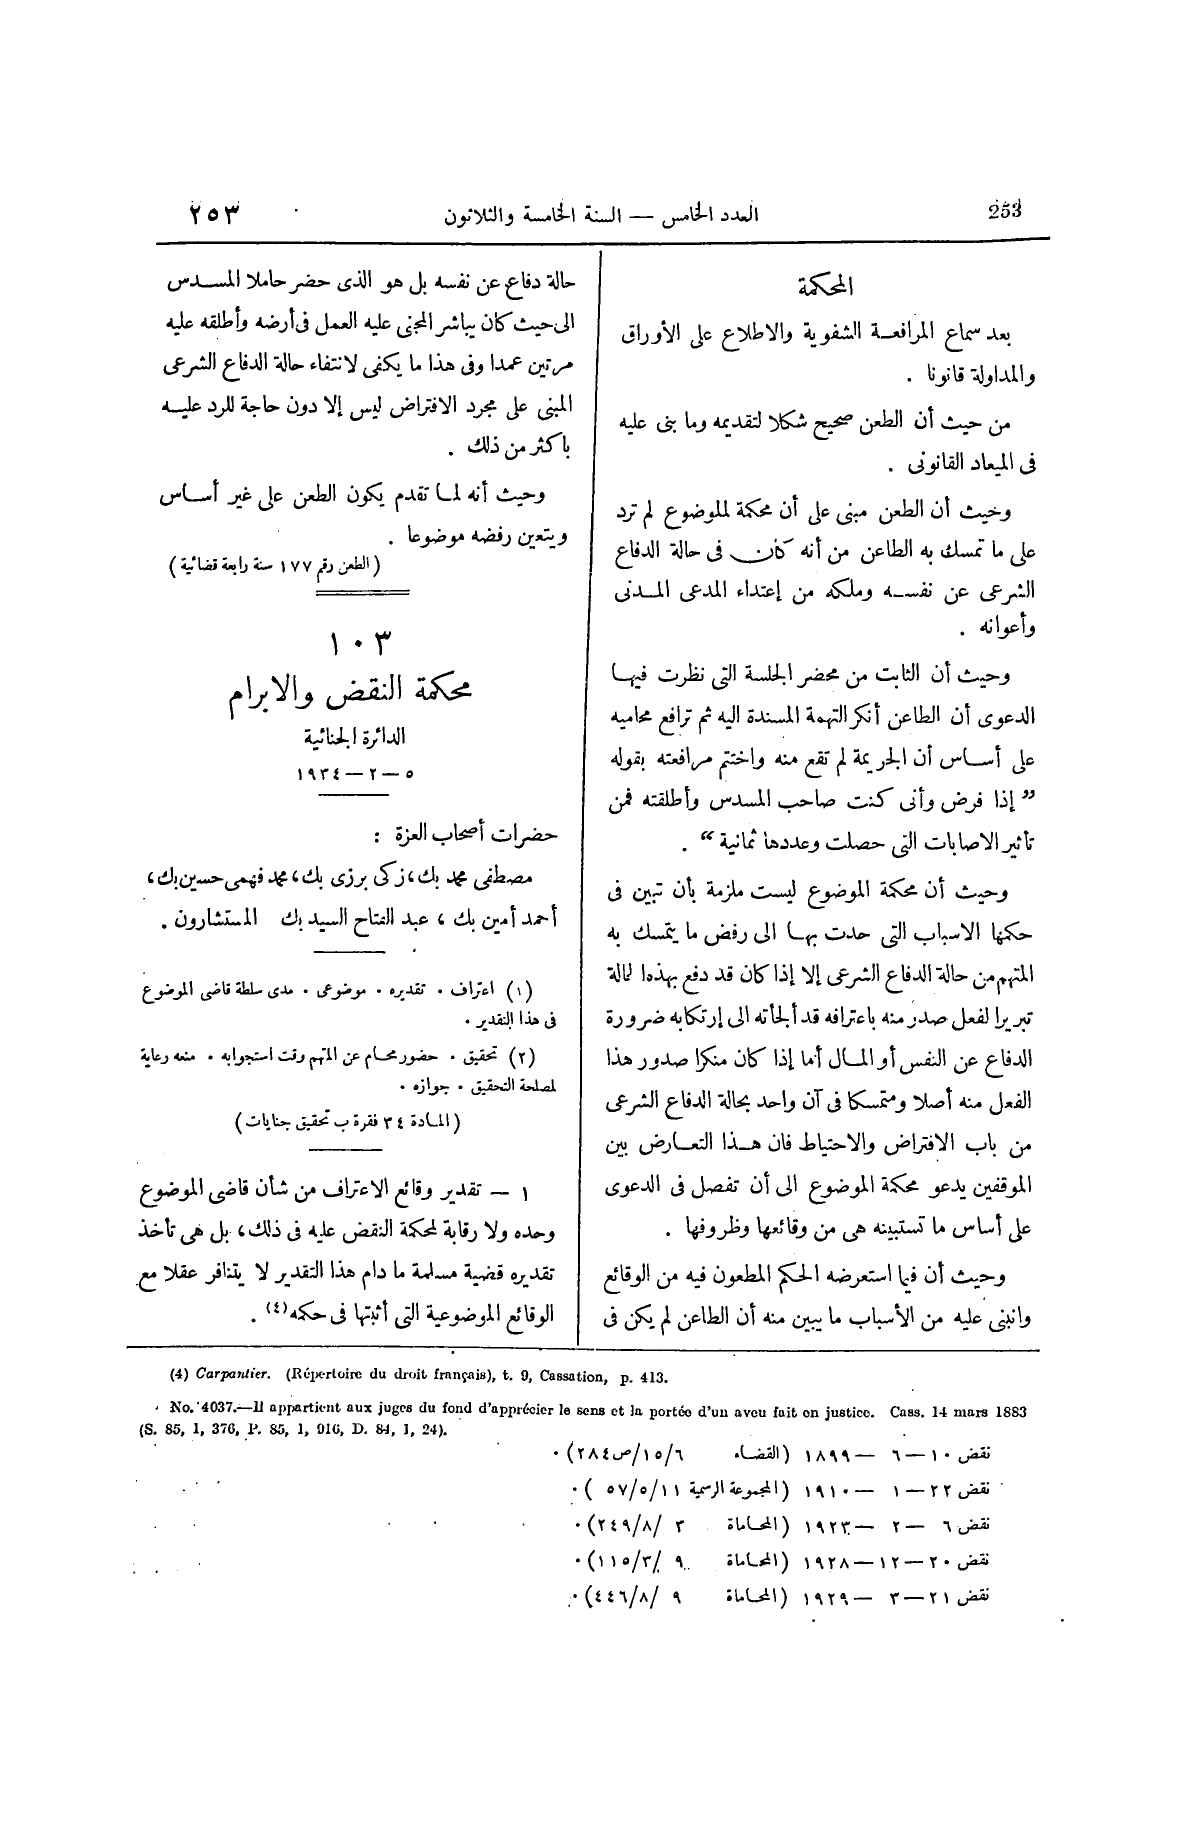 253
العدد الخامس — السنة الخامسة والثلاثون
٢٥٣
المحكمة
بعد سماع المرافعة الشفوية والاطلاع على الأوراق
والمداولة قانونا .
من حيث أن الطعن صحيح شكلا لتقديمه وما بنى عليه
فى الميعاد القانونى .
وحيث أن الطعن مبنى على أن محكمة الموضوع لم ترد
على ما تمسك به الطاعن من أنه كان فى حالة الدفاع
الشرعى عن نفسه وملكه من إعتداء المدعى المدنى
وأعوانه .
وحيث أن الثابت من محضر الجلسة التى نظرت فيها
الدعوى أن الطاعن أنكر التهمة المسندة اليه ثم ترافع محاميه
على أساس أن الجريمة لم تقع منه واختتم مرافعته بقوله
” إذا فرض وأنى كنت صاحب المسدس وأطلقته فمن
تأثير الاصابات التى حصلت وعددها ثمانية “ .
وحيث أن محكمة الموضوع ليست ملزمة بأن تبين فى
حكمها الاسباب التى حدت بها الى رفض ما يتمسك به
المتهم من حالة الدفاع الشرعى إلا إذا كان قد دفع بهذه الحالة
تبريرا لفعل صدر منه باعترافه قد ألجأته الى إرتكابه ضرورة
الدفاع عن النفس أو المال أما إذا كان منكرا صدور هذا
الفعل منه أصلا ومتمسكا فى آن واحد بحالة الدفاع الشرعى
من باب الافتراض والاحتياط فان هذا التعارض بين
الموقفين يدعو محكمة الموضوع الى أن تفصل فى الدعوى
على أساس ما تستبينه هى من وقائعها وظروفها .
وحيث أن فيما استعرضه الحكم المطعون فيه من الوقائع
وانبنى عليه من الأسباب ما يبين منه أن الطاعن لم يكن فى
حالة دفاع عن نفسه بل هو الذى حضر حاملا المسدس
الى حيث كان يباشر المجنى عليه العمل فى أرضه وأطلقه عليه
مرتين عمدا وفى هذا ما يكفى لانتفاء حالة الدفاع الشرعى
المبنى على مجرد الافتراض ليس إلا دون حاجة للرد عليه
باكثر من ذلك .
وحيث أنه لما تقدم يكون الطعن على غير أساس
ويتعين رفضه موضوعا .
( الطعن رقم ١٧٧ سنة رابعة قضائية )
١٠٣
محكمة النقض والابرام
الدائرة الجنائية
٥ — ٢ — ١٩٣٤
حضرات أصحاب العزة :
مصطفى محمد بك ، زكى برزى بك ، محمد فهمى حسين بك ،
أحمد أمين بك ، عبد الفتاح السيد بك المستشارون .
(١) اعتراف . تقديره . موضوعى . مدى سلطة قاضى الموضوع
فى هذا التقدير .
(٢) تحقيق . حضور محام عن المتهم وقت استجوابه . منعه رعاية
لمصلحة التحقيق . جوازه .
( المادة ٣٤ فقرة ب تحقيق جنايات )
١ — تقدير وقائع الاعتراف من شأن قاضى الموضوع
وحده ولا رقابة لمحكمة النقض عليه فى ذلك ، بل هى تأخذ
تقديره قضية مسلمة ما دام هذا التقدير لا يتنافر عقلا مع
الوقائع الموضوعية التى أثبتها فى حكمه (٤) .
(4) Carpantier. (Répertoire du droit français), t. 9, Cassation, p. 413.
No. 4037.—Il appartient aux juges du fond d'apprécier le sens et la portée d'un aveu fait en justice. Cass. 14 mars 1883
(S. 85, 1, 376, P. 85, 1, 916, D. 84, 1, 24).
نقض ١٠ — ٦ — ١٨٩٩ ( القضاء ٦/١٥/ص٢٨٤ ) .
نقض ٢٢ — ١ — ١٩١٠ ( المجموعة الرسمية ١١/٥/٥٧ ) .
نقض ٦ — ٢ — ١٩٢٣ ( المحاماة ٣ /٨/٢٤٩ ) .
نقض ٢٠ — ١٢ — ١٩٢٨ ( المحاماة ٩ /٣/١١٥ ) .
نقض ٢١ — ٣ — ١٩٢٩ ( المحاماة ٩ /٨/٤٤٦ ) .